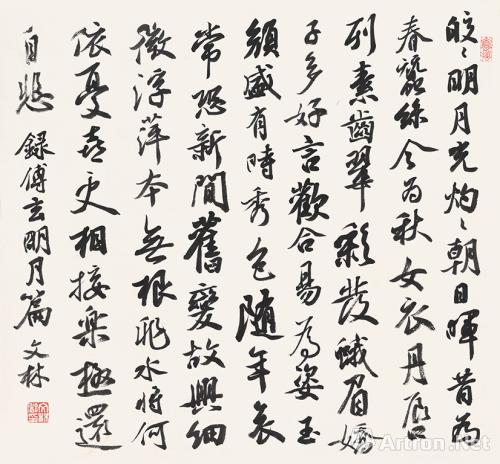 皎々明月光灼々朝日暉昔為
春蠶絲今為秋女衣丹唇
列素齒翠彩發蛾眉嬌
子多好言歡合易為姿玉
顏盛有時秀色隨年衰
常恐新間舊變故興細
微浮萍本無根非水將何
依憂喜更相接樂極還
自悲 錄傅玄明月篇 文林
Artron.Net